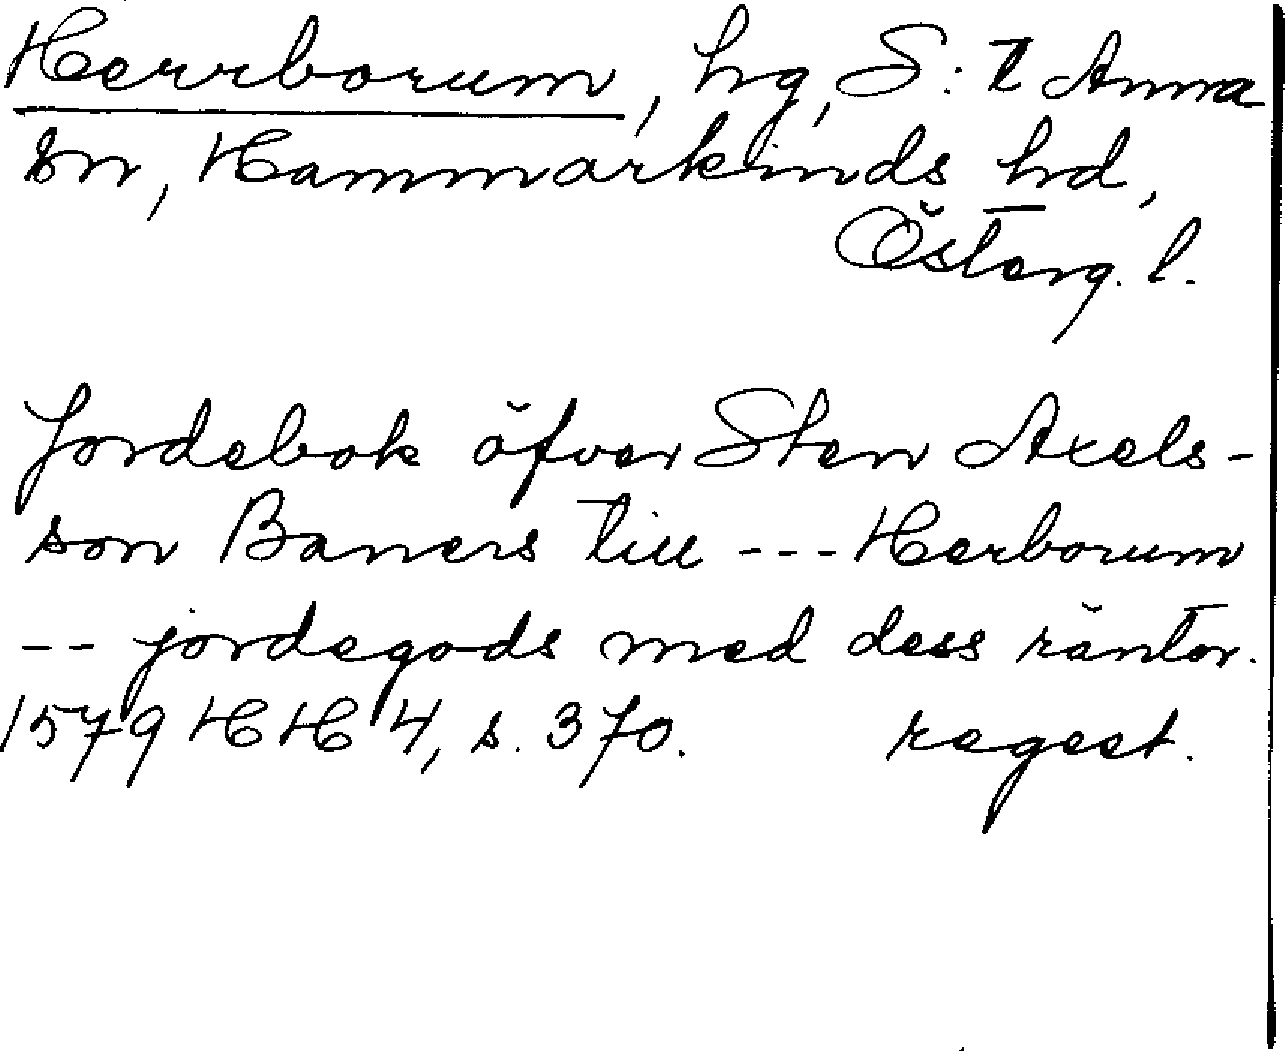 Herrborum, hg, S:t Anna
sn, Hammarkinds hd,
Österg. l.
Jordebok öfver Sten Axels-
son Baners till --- Herborum
-- jordegods med dess räntor.
1579 HH 4, s. 370. regest.